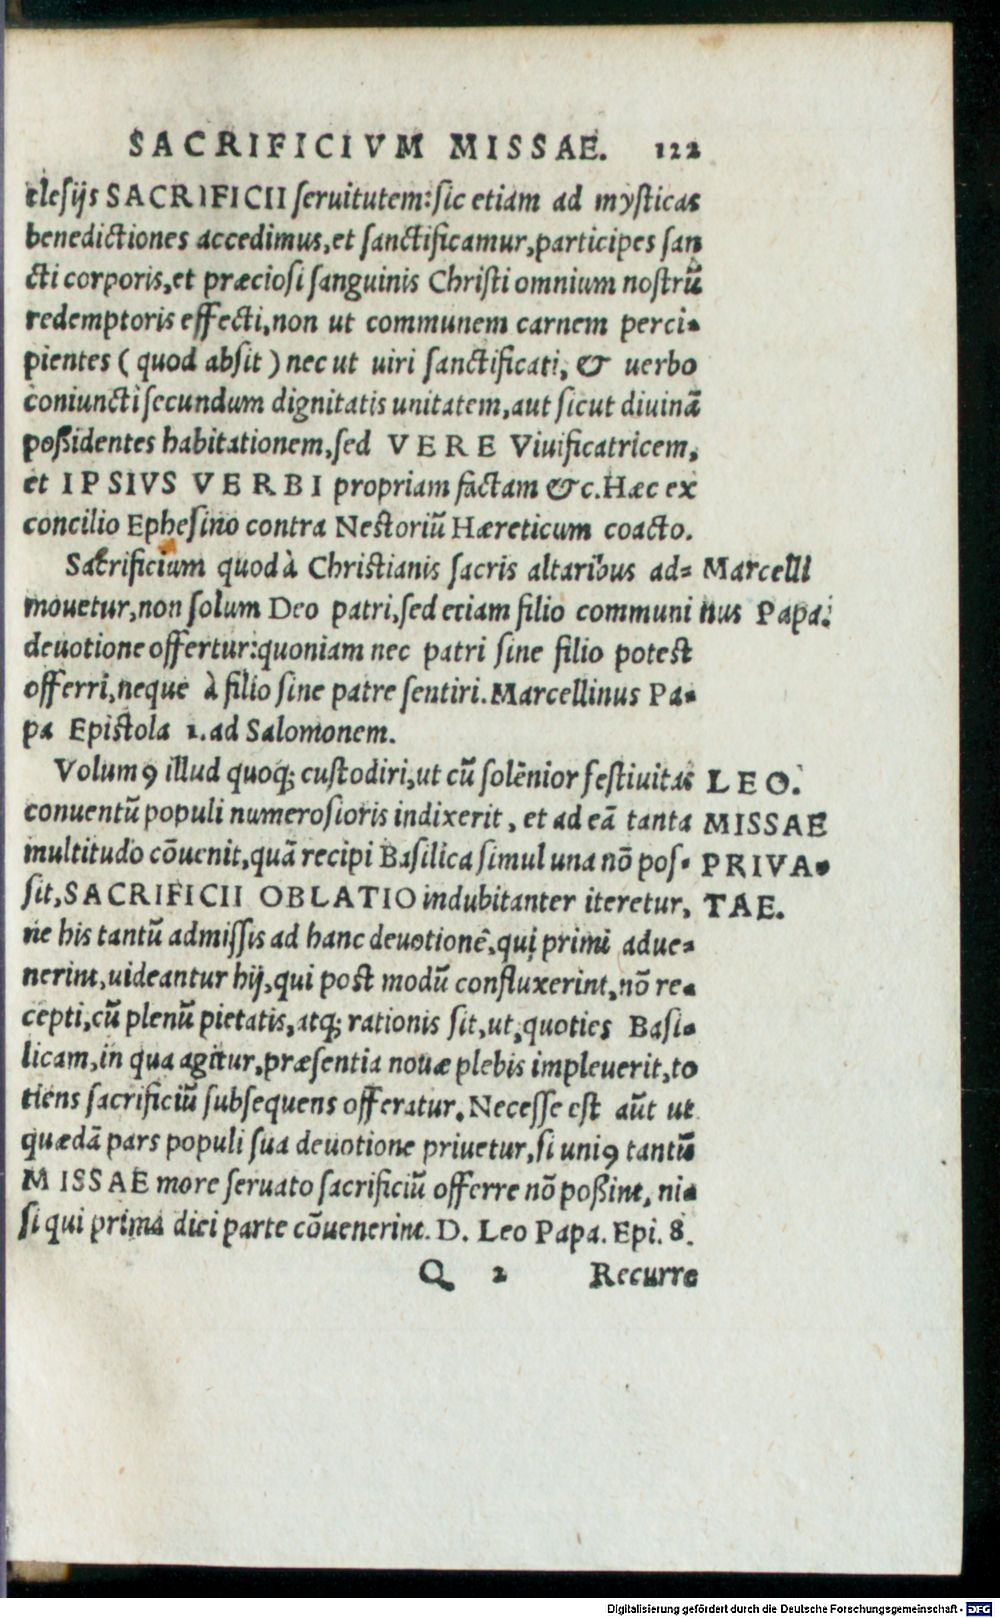 SACRIFICIVM MISSAE. 122
clesijs SACRIFICII seruitutem: sic etiam ad mysticas
benedictiones accedimus, et sanctificamur, participes san
cti corporis, et præciosi sanguinis Christi omnium nostrũ
redemptoris effecti, non ut communem carnem perci-
pientes (quod absit) nec ut uiri sanctificati, & uerbo
coniuncti secundum dignitatis unitatem, aut sicut diuinã
poßidentes habitationem, sed VERE Viuificatricem,
et IPSIVS VERBI propriam factam &c. Hæc ex
concilio Ephesino contra Nestoriũ Hæreticum coacto.
Sacrificium quod à Christianis sacris altaribus ad-
mouetur, non solum Deo patri, sed etiam filio communi
deuotione offertur: quoniam nec patri sine filio potest
offerri, neque à filio sine patre sentiri. Marcellinus Pa-
pa Epistola 2. ad Salomonem.
Marcelli
nus Papa.
Volumꝯ illud quoqꝫ custodiri, ut cũ solẽnior festiuitas
conuentũ populi numerosioris indixerit, et ad eã tanta
multitudo cõuenit, quã recipi Basilica simul una nõ pos-
sit, SACRIFICII OBLATIO indubitanter iteretur,
ne his tantũ admissis ad hanc deuotionẽ, qui primi adue-
nerint, uideantur hij, qui post modũ confluxerint, nõ re-
cepti, cũ plenũ pietatis, atqꝫ rationis sit, ut, quoties Basi-
licam, in qua agitur, præsentia nouæ plebis impleuerit, to
tiens sacrificiũ subsequens offeratur. Necesse est aũt ut
quædã pars populi sua deuotione priuetur, si uniꝯ tantũ
MISSAE more seruato sacrificiũ offerre nõ poßint, ni-
si qui prima diei parte cõuenerint. D. Leo Papa. Epi. 8.
LEO.
MISSAE
PRIVA-
TAE.
Q 2 Recurre
Digitalisierung gefördert durch die Deutsche Forschungsgemeinschaft - DFG